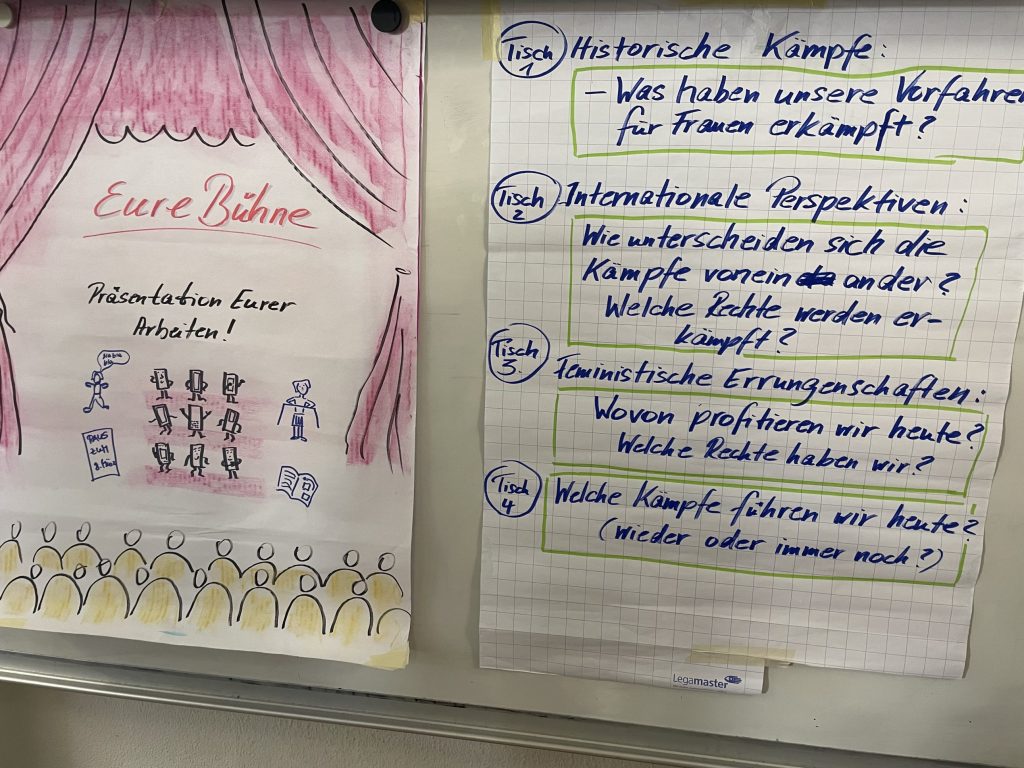 Eure Bühne
Präsentation Eurer
Arbeiten!
Tisch
1
Historische Kämpfe:
- Was haben unsere Vorfahren
für Frauen erkämpft?
Tisch
2
Internationale Perspektiven:
Wie unterscheiden sich die
Kämpfe vonein ander?
Welche Rechte werden er-
kämpft?
Tisch
3
Feministische Errungenschaften:
Wovon profitieren wir heute?
Welche Rechte haben wir?
Tisch
4
Welche Kämpfe führen wir heute?
(wieder oder immer noch?)
Legamaster